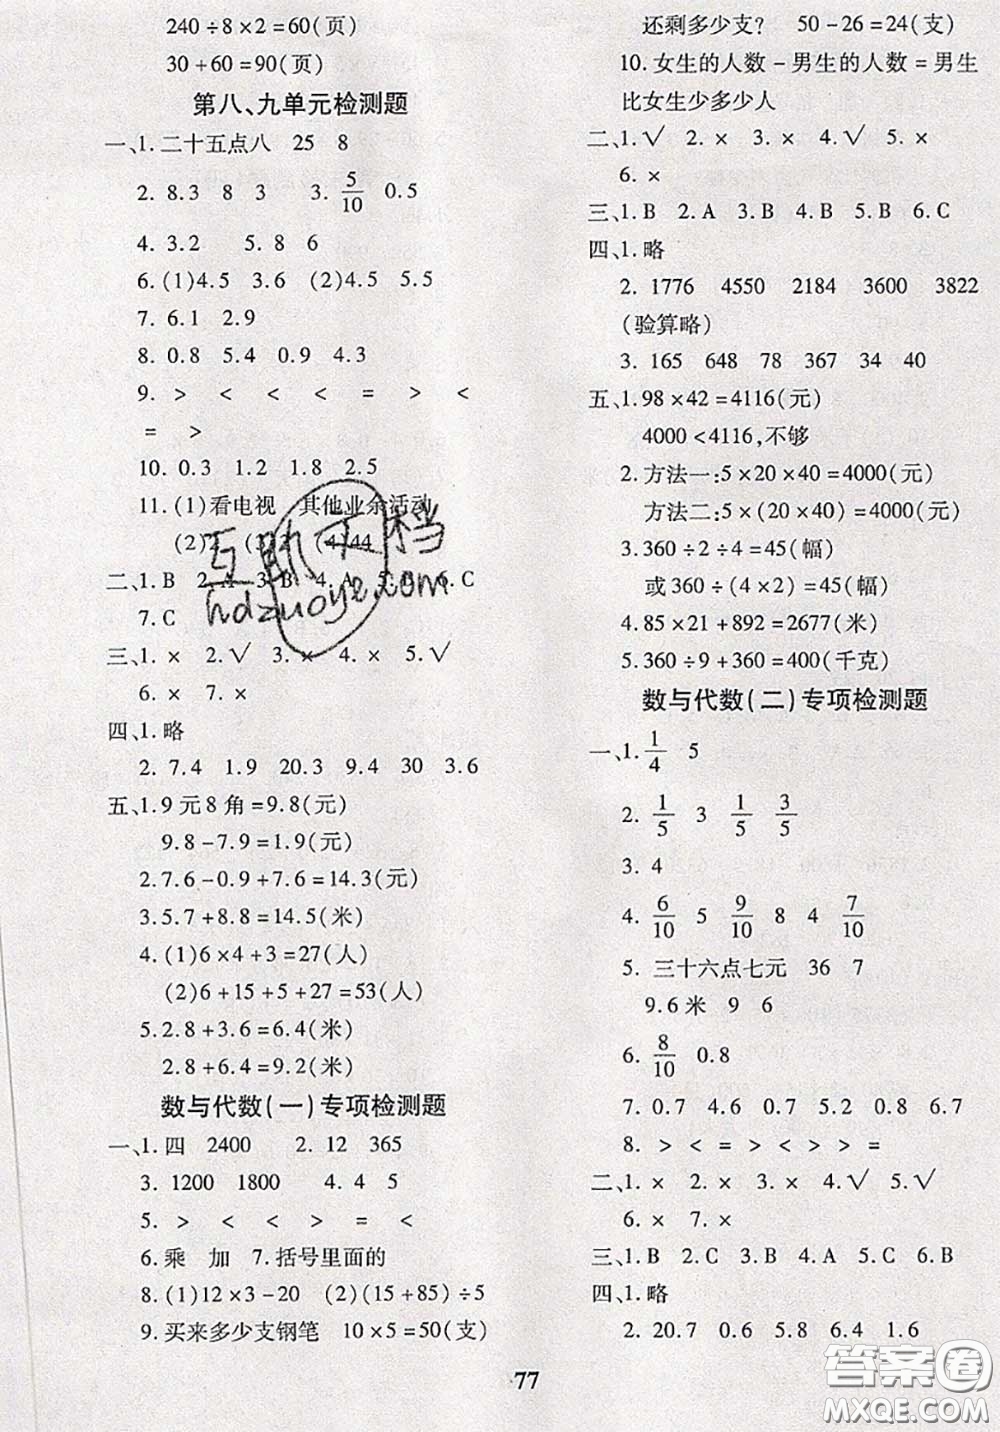 240÷8×2=60(页)
30+60=90(页)
第八、九单元检测题
一、1.二十五点八 25 8
2. 8.3 8 3 3. 5/10 0.5
4. 3.2 5. 8 6
6. (1)4.5 3.6 (2)4.5 5.4
7. 6.1 2.9
8. 0.8 5.4 0.9 4.3
9. > < < < = > <
= >
10. 0.3 1.2 1.8 2.5
11. (1)看电视 其他业余活动
(2)2 (4)44
二、1. B 2. A 3. B 4. A 5. B 6. C
7. C
三、1. × 2. √ 3. × 4. × 5. √
6. × 7. ×
四、1. 略
2. 7.4 1.9 20.3 9.4 30 3.6
五、1.9元8角=9.8(元)
9.8-7.9=1.9(元)
2.7.6-0.9+7.6=14.3(元)
3.5.7+8.8=14.5(米)
4. (1)6×4+3=27(人)
(2)6+15+5+27=53(人)
5.2.8+3.6=6.4(米)
2.8+6.4=9.2(米)
数与代数(一)专项检测题
一、1.四 2400 2. 12 365
3. 1200 1800 4. 4 5
5. > < < > = <
6. 乘 加 7. 括号里面的
8. (1)12×3-20 (2)(15+85)÷5
9. 买来多少支钢笔 10×5=50(支)
还剩多少支? 50-26=24(支)
10. 女生的人数-男生的人数=男生
比女生少多少人
二、1. √ 2. × 3. × 4. √ 5. ×
6. ×
三、1. B 2. A 3. B 4. B 5. B 6. C
四、1. 略
2. 1776 4550 2184 3600 3822
(验算略)
3. 165 648 78 367 34 40
五、1.98×42=4116(元)
4000<4116,不够
2. 方法一:5×20×40=4000(元)
方法二:5×(20×40)=4000(元)
3.360÷2÷4=45(幅)
或360÷(4×2)=45(幅)
4.85×21+892=2677(米)
5.360÷9+360=400(千克)
数与代数(二)专项检测题
一、1. 1/4 5
2. 1/5 3 1/5 3/5
3. 4
4. 6/10 5 9/10 8 4 7/10
5. 三十六点七元 36 7
9.6米 9 6
6. 8/10 0.8
7. 0.7 4.6 0.7 5.2 0.8 6.7
8. > < = > < > > =
二、1. × 2. × 3. × 4. √ 5. √
6. × 7. ×
三、1. B 2. C 3. B 4. A 5. C 6. B
四、1. 略
2. 20.7 0.6 5.8 6.4 1.6
77
互助文档
hdzuoye.com
答案圈
MXQE.COM